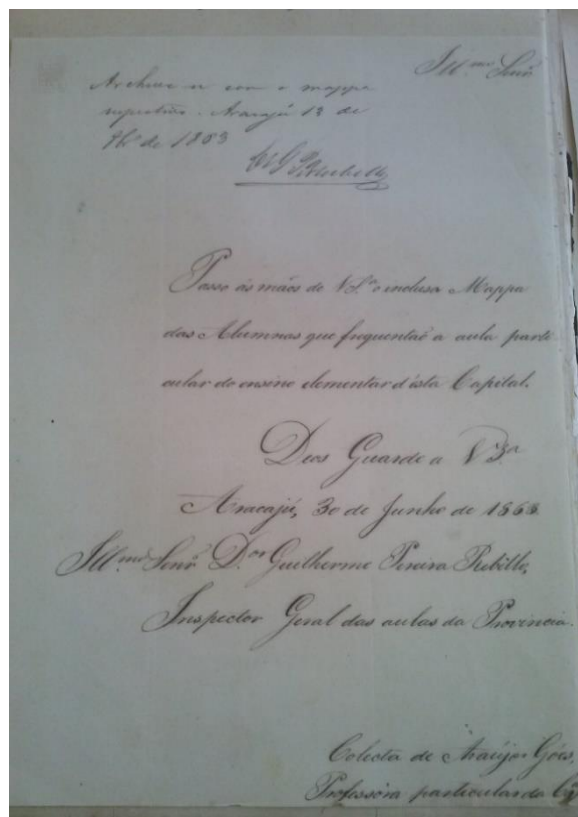 Ill.mo Senr.
Archive-se com o mappa
respectivo. Aracajú 13 de
de 1863
Passo ás mãos de V.S.ª o incluso Mappa
das Alumnas que frequentaõ a aula parti
cular do ensino elementar d'esta Capital.
Deos Guarde a V S.ª
Aracajú, 30 de Junho de 1863
Ill.mo Senr. D.or Guilherme Pereira Rebello,
Inspector Geral das aulas da Provincia.
Colecta de Araujo Góes,
Professora particular da